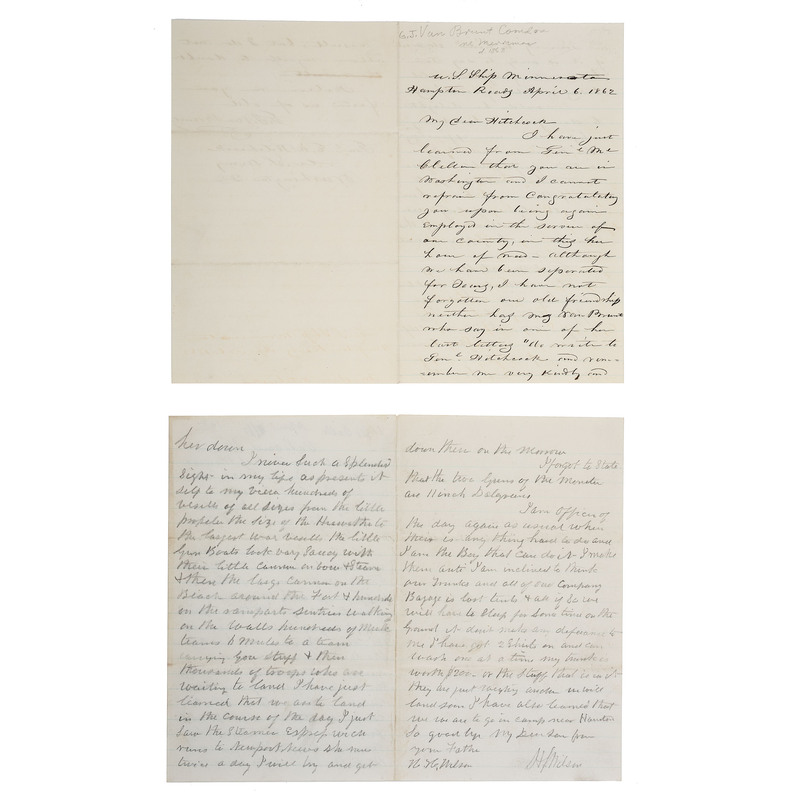 G.J. Van Brunt Comdr
U.S. Ship Minnesota
Hampton Roads April 6. 1862
My dear Hitchcock
I have just
learned from Genl Mc
Clellan that you are in
Washington and I cannot
refrain from Congratulating
you upon being again
Employed in the service of
our country, in this her
hour of need - although
we have been separated
for Years, I have not
forgotten our old friendship
neither has Mrs Van Brunt
who say in one of her
last letters "do write to
Genl Hitchcock and rem-
ember me very Kindly and
her down
I never Such a Splended
Sight in my life as presents it
Self to my view hundreds of
vessells of all Sizes from the little
propeller the Size of the
the largest war vessells the little
Gun Boats look very Saucy with
their little cannon on bow & Stearn
& then the large cannon on the
Beach around the Fort & hundreds
on the ramparts Sentries walking
on the Walls hundreds of Mule
teams 6 Mules to a team
carrying Gov Stuff & then
thousands of troops who are
waiting to land I have just
learned that we are to land
in the course of the day I just
Saw the Steamer Express wich
runs to Newport News She runs
twice a day I will try and get
down there on the Morrow
I forgot to State
that the two Guns of the Moniter
are 11 inch Dalgrens
I am Officer of
the day again as usual when
there is any thing hard to do and
I am the Boy that Can do it I make
them I am inclined to think
our Trunks and all of our Company
Bagage is lost tents & all if So we
will have to Sleep for Some time on the
Ground it dont make any deference to
me I have got 2 Shirts on and can
wash one at a time my trunk is
worth $200- or the Stuff that is in it
they are just we will
land soon I have also learned that
we are to go in camp near Hamton
So good bye My Dear Son from
your Father
Wilson
Wilson